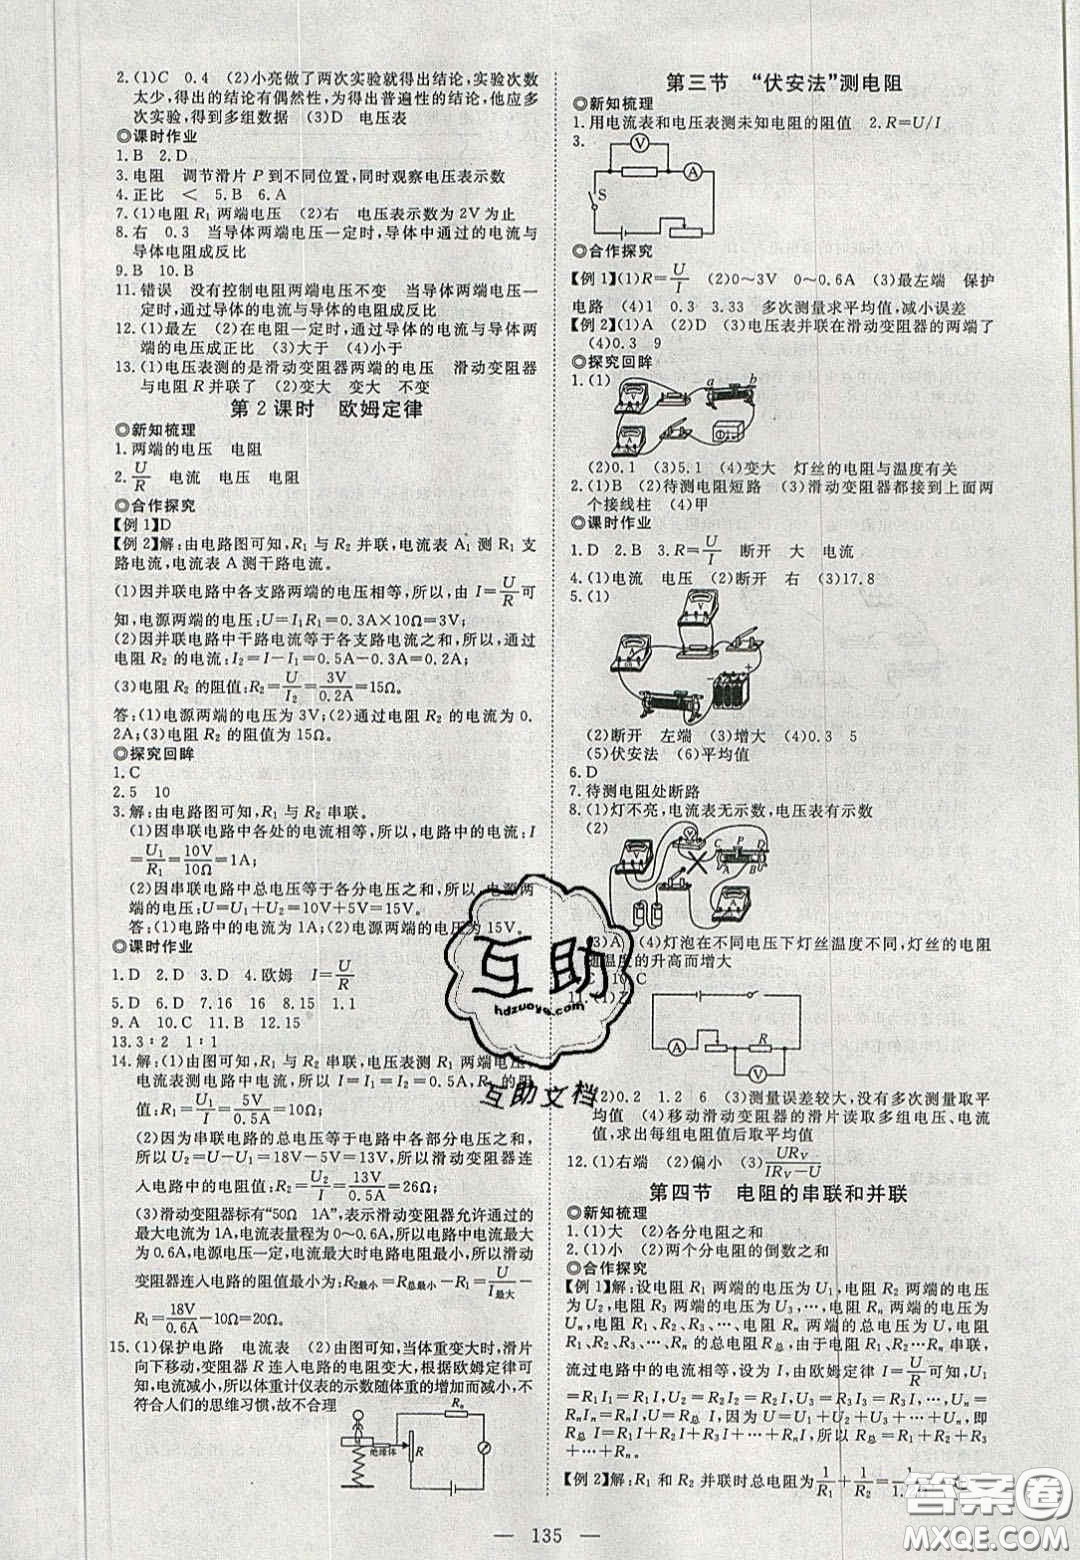 2.(1)C　0.4　(2)小亮做了两次实验就得出结论,实验次数
太少,得出的结论有偶然性,为得出普遍性的结论,他应多
次实验,得到多组数据　(3)D　电压表
◎课时作业
1.B　2.D
3.电阻　调节滑片P到不同位置,同时观察电压表示数
4.正比　<　5.B　6.A
7.(1)电阻R₁两端电压　(2)右　电压表示数为2V为止
8.右　0.3　当导体两端电压一定时,导体中通过的电流与
导体电阻成反比
9.B　10.B
11.错误　没有控制电阻两端电压不变　当导体两端电压一
定时,通过导体的电流与导体的电阻成反比
12.(1)最左　(2)在电阻一定时,通过导体的电流与导体两
端的电压成正比　(3)大于　(4)小于
13.(1)电压表测的是滑动变阻器两端的电压　滑动变阻器
与电阻R并联了　(2)变大　变大　不变
第2课时　欧姆定律
◎新知梳理
1.两端的电压　电阻
2.U/R　电流　电压　电阻
◎合作探究
【例1】D
【例2】解:由电路图可知,R₁与R₂并联,电流表A₁测R₁支
路电流,电流表A测干路电流。
(1)因并联电路中各支路两端的电压相等,所以,由I=U/R可
知,电源两端的电压:U=I₁R₁=0.3A×10Ω=3V;
(2)因并联电路中干路电流等于各支路电流之和,所以,通过
电阻R₂的电流:I₂=I-I₁=0.5A-0.3A=0.2A;
(3)电阻R₂的阻值:R₂=U/I₂=3V/0.2A=15Ω。
答:(1)电源两端的电压为3V;(2)通过电阻R₂的电流为0.
2A;(3)电阻R₂的阻值为15Ω。
◎探究回眸
1.C
2.5　10
3.解:由电路图可知,R₁与R₂串联。
(1)因串联电路中各处的电流相等,所以,电路中的电流:I
=U₁/R₁=10V/10Ω=1A;
(2)因串联电路中总电压等于各分电压之和,所以,电源两
端的电压:U=U₁+U₂=10V+5V=15V。
答:(1)电路中的电流为1A;(2)电源两端的电压为15V。
◎课时作业
1.D　2.D　3.D　4.欧姆　I=U/R
5.D　6.D　7.16　16　8.15　1.1
9.A　10.C　11.B　12.15
13.3∶2　1∶1
14.解:(1)由图可知,R₁与R₂串联,电压表测R₁两端电压,
电流表测电路中电流,所以I=I₁=I₂=0.5A,R₁的阻
值:R₁=U₁/I=5V/0.5A=10Ω;
(2)因为串联电路的总电压等于电路中各部分电压之和,
所以U₂=U-U₁=18V-5V=13V,所以,滑动变阻器连
入电路中的电阻值:R₂=U₂/I=13V/0.5A=26Ω;
(3)滑动变阻器标有“50Ω　1A”,表示滑动变阻器允许通过的
最大电流为1A,电流表量程为0～0.6A,所以电路中电流最大
为0.6A,电源电压一定,电流最大时电路电阻最小,所以滑动
变阻器连入电路的阻值最小为:R₂最小=R总最小-R₁=U/I最大-
R₁=18V/0.6A-10Ω=20Ω。
15.(1)保护电路　电流表　(2)由图可知,当体重变大时,滑片
向下移动,变阻器R连入电路的电阻变大,根据欧姆定律可
知,电流变小,所以体重计仪表的示数随体重的增加而减小,不
符合人们的思维习惯,故不合理
R₀
绝缘体
R
第三节　“伏安法”测电阻
◎新知梳理
1.用电流表和电压表测未知电阻的阻值　2.R=U/I
3.
V
A
S
◎合作探究
【例1】(1)R=U/I　(2)0～3V　0～0.6A　(3)最左端　保护
电路　(4)1　0.3　3.33　多次测量求平均值,减小误差
【例2】(1)A　(2)D　(3)电压表并联在滑动变阻器的两端了
(4)0.3　9
◎探究回眸
1.(1)
a
b
(2)0.1　(3)5.1　(4)变大　灯丝的电阻与温度有关
2.(1)B　(2)待测电阻短路　(3)滑动变阻器都接到上面两
个接线柱　(4)甲
◎课时作业
1.D　2.B　3.R=U/I　断开　大　电流
4.(1)电流　电压　(2)断开　右　(3)17.8
5.(1)
(2)断开　左端　(3)增大　(4)0.3　5
(5)伏安法　(6)平均值
6.D
7.待测电阻处断路
8.(1)灯不亮,电流表无示数,电压表有示数
(2)
C P D
A B
(3)A　(4)灯泡在不同电压下灯丝温度不同,灯丝的电阻
随温度的升高而增大
9.C　10.C
11.(1)
A
R
V
(2)0.2　1.2　6　(3)测量误差较大,没有多次测量取平
均值　(4)移动滑动变阻器的滑片读取多组电压、电流
值,求出每组电阻值后取平均值
12.(1)右端　(2)偏小　(3)URv/(IRv-U)
第四节　电阻的串联和并联
◎新知梳理
1.(1)大　(2)各分电阻之和
2.(1)小　(2)两个分电阻的倒数之和
◎合作探究
【例1】解:设电阻R₁两端的电压为U₁,电阻R₂两端的电压
为U₂,电阻R₃两端的电压为U₃,…,电阻Rₙ两端的电压为
Uₙ,电阻R₁、R₂、R₃、…、Rₙ的总电阻R总,由于电阻R₁、
R₂、R₃、…、Rₙ串联,
流过电路中的电流相等,设为I,由欧姆定律I=U/R可知,U₁
=R₁I₁=R₁I,U₂=R₂I₂=R₂I,U₃=R₃I₃=R₃I,…,Uₙ=
RₙIₙ=RₙI,因为U=U₁+U₂+U₃+…+Uₙ,即
R总I=R₁I+R₂I+R₃I+…+RₙI,所以R总=R₁+R₂+R₃
+…+Rₙ。
【例2】解:R₁和R₂并联时总电阻为1/R₁+1/R₂=
互助
hdzuoye.com
互助文档
答案圈
MXQE.COM
— 135 —